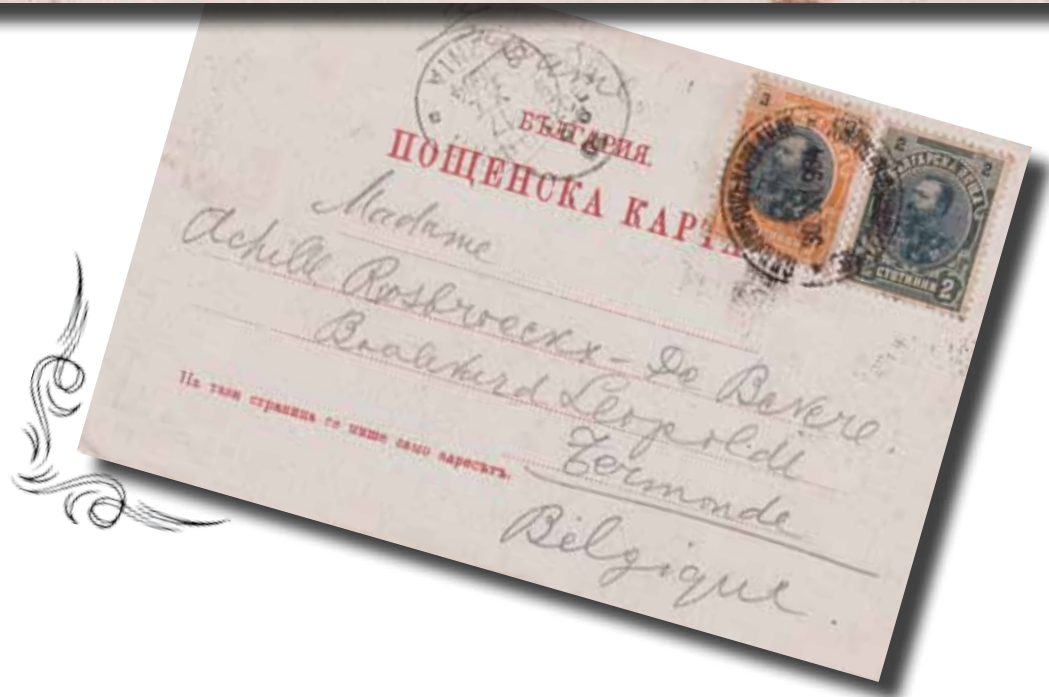 БЪЛГАРИЯ.
ПОЩЕНСКА КАРТА
3
2 2
СТОТИНКИ 2
Madame
Achille Rosbroeckx - De Bevere.
Boulevard Leopold I
Termonde
Belgique.
На тази страница се пише само адресътъ.